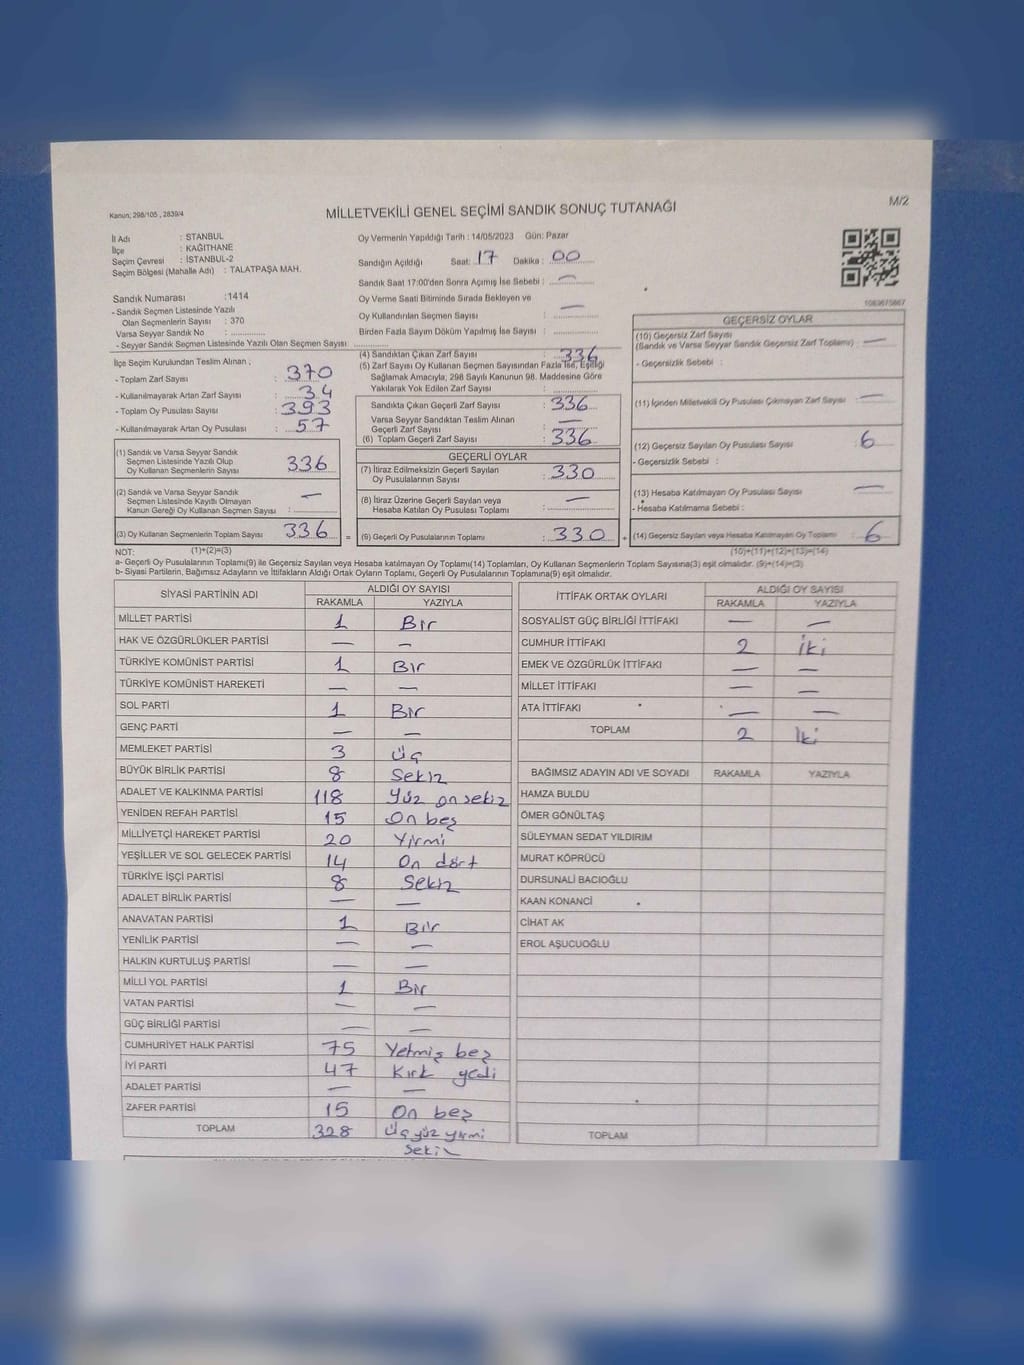 M/2
Kanun; 298/105 , 2839/4
MİLLETVEKİLİ GENEL SEÇİMİ SANDIK SONUÇ TUTANAĞI
İl Adı : İSTANBUL
İlçe : KAĞITHANE
Seçim Çevresi : İSTANBUL-2
Seçim Bölgesi (Mahalle Adı) : TALATPAŞA MAH.
Oy Vermenin Yapıldığı Tarih : 14/05/2023 Gün: Pazar
Sandığın Açıldığı Saat: 17 Dakika : 00
Sandık Saat 17:00'den Sonra Açımış İse Sebebi : —
Oy Verme Saati Bitiminde Sırada Bekleyen ve
Oy Kullandırılan Seçmen Sayısı : —
Birden Fazla Sayım Döküm Yapılmış İse Sayısı :
Sandık Numarası :1414
- Sandık Seçmen Listesinde Yazılı
Olan Seçmenlerin Sayısı : 370
Varsa Seyyar Sandık No :
- Seyyar Sandık Seçmen Listesinde Yazılı Olan Seçmen Sayısı :
1083675867
İlçe Seçim Kurulundan Teslim Alınan ;
- Toplam Zarf Sayısı : 370
- Kullanılmayarak Artan Zarf Sayısı : 34
- Toplam Oy Pusulası Sayısı : 393
- Kullanılmayarak Artan Oy Pusulası : 57
(1) Sandık ve Varsa Seyyar Sandık
Seçmen Listesinde Yazılı Olup
Oy Kullanan Seçmenlerin Sayısı : 336
(2) Sandık ve Varsa Seyyar Sandık
Seçmen Listesinde Kayıtlı Olmayan
Kanun Gereği Oy Kullanan Seçmen Sayısı : —
(3) Oy Kullanan Seçmenlerin Toplam Sayısı : 336
(4) Sandıktan Çıkan Zarf Sayısı : 336
(5) Zarf Sayısı Oy Kullanan Seçmen Sayısından Fazla İse, Eşitliği
Sağlamak Amacıyla; 298 Sayılı Kanunun 98. Maddesine Göre
Yakılarak Yok Edilen Zarf Sayısı :
Sandıkta Çıkan Geçerli Zarf Sayısı : 336
Varsa Seyyar Sandıktan Teslim Alınan
Geçerli Zarf Sayısı : —
(6) Toplam Geçerli Zarf Sayısı : 336
GEÇERLİ OYLAR
(7) İtiraz Edilmeksizin Geçerli Sayılan
Oy Pusulalarının Sayısı : 330
(8) İtiraz Üzerine Geçerli Sayılan veya
Hesaba Katılan Oy Pusulası Toplamı : —
= (9) Geçerli Oy Pusulalarının Toplamı : 330 +
GEÇERSİZ OYLAR
(10) Geçersiz Zarf Sayısı
(Sandık ve Varsa Seyyar Sandık Geçersiz Zarf Toplamı) : —
- Geçersizlik Sebebi :
(11) İçinden Milletvekili Oy Pusulası Çıkmayan Zarf Sayısı : —
(12) Geçersiz Sayılan Oy Pusulası Sayısı : 6
- Geçersizlik Sebebi :
(13) Hesaba Katılmayan Oy Pusulası Sayısı : —
- Hesaba Katılmama Sebebi :
(14) Geçersiz Sayılan veya Hesaba Katılmayan Oy Toplamı : 6
NOT: (1)+(2)=(3) (10)+(11)+(12)+(13)=(14)
a- Geçerli Oy Pusulalarının Toplamı(9) ile Geçersiz Sayılan veya Hesaba katılmayan Oy Toplamı(14) Toplamları, Oy Kullanan Seçmenlerin Toplam Sayısına(3) eşit olmalıdır. (9)+(14)=(3)
b- Siyasi Partilerin, Bağımsız Adayların ve İttifakların Aldığı Ortak Oyların Toplamı, Geçerli Oy Pusulalarının Toplamına(9) eşit olmalıdır.
SİYASİ PARTİNİN ADI ALDIĞI OY SAYISI
RAKAMLA YAZIYLA
MİLLET PARTİSİ 1 Bir
HAK VE ÖZGÜRLÜKLER PARTİSİ — —
TÜRKİYE KOMÜNİST PARTİSİ 1 Bir
TÜRKİYE KOMÜNİST HAREKETİ — —
SOL PARTİ 1 Bir
GENÇ PARTİ — —
MEMLEKET PARTİSİ 3 Üç
BÜYÜK BİRLİK PARTİSİ 8 Sekiz
ADALET VE KALKINMA PARTİSİ 118 Yüz on sekiz
YENİDEN REFAH PARTİSİ 15 On beş
MİLLİYETÇİ HAREKET PARTİSİ 20 Yirmi
YEŞİLLER VE SOL GELECEK PARTİSİ 14 On dört
TÜRKİYE İŞÇİ PARTİSİ 8 Sekiz
ADALET BİRLİK PARTİSİ — —
ANAVATAN PARTİSİ 1 Bir
YENİLİK PARTİSİ — —
HALKIN KURTULUŞ PARTİSİ — —
MİLLİ YOL PARTİSİ 1 Bir
VATAN PARTİSİ — —
GÜÇ BİRLİĞİ PARTİSİ — —
CUMHURİYET HALK PARTİSİ 75 Yetmiş beş
İYİ PARTİ 47 Kırk yedi
ADALET PARTİSİ — —
ZAFER PARTİSİ 15 On beş
TOPLAM 328 Üç yüz yirmi
sekiz
İTTİFAK ORTAK OYLARI ALDIĞI OY SAYISI
RAKAMLA YAZIYLA
SOSYALİST GÜÇ BİRLİĞİ İTTİFAKI — —
CUMHUR İTTİFAKI 2 İki
EMEK VE ÖZGÜRLÜK İTTİFAKI — —
MİLLET İTTİFAKI — —
ATA İTTİFAKI — —
TOPLAM 2 İki
BAĞIMSIZ ADAYIN ADI VE SOYADI RAKAMLA YAZIYLA
HAMZA BULDU
ÖMER GÖNÜLTAŞ
SÜLEYMAN SEDAT YILDIRIM
MURAT KÖPRÜCÜ
DURSUNALİ BACIOĞLU
KAAN KONANCİ
CİHAT AK
EROL AŞUCUOĞLU
TOPLAM